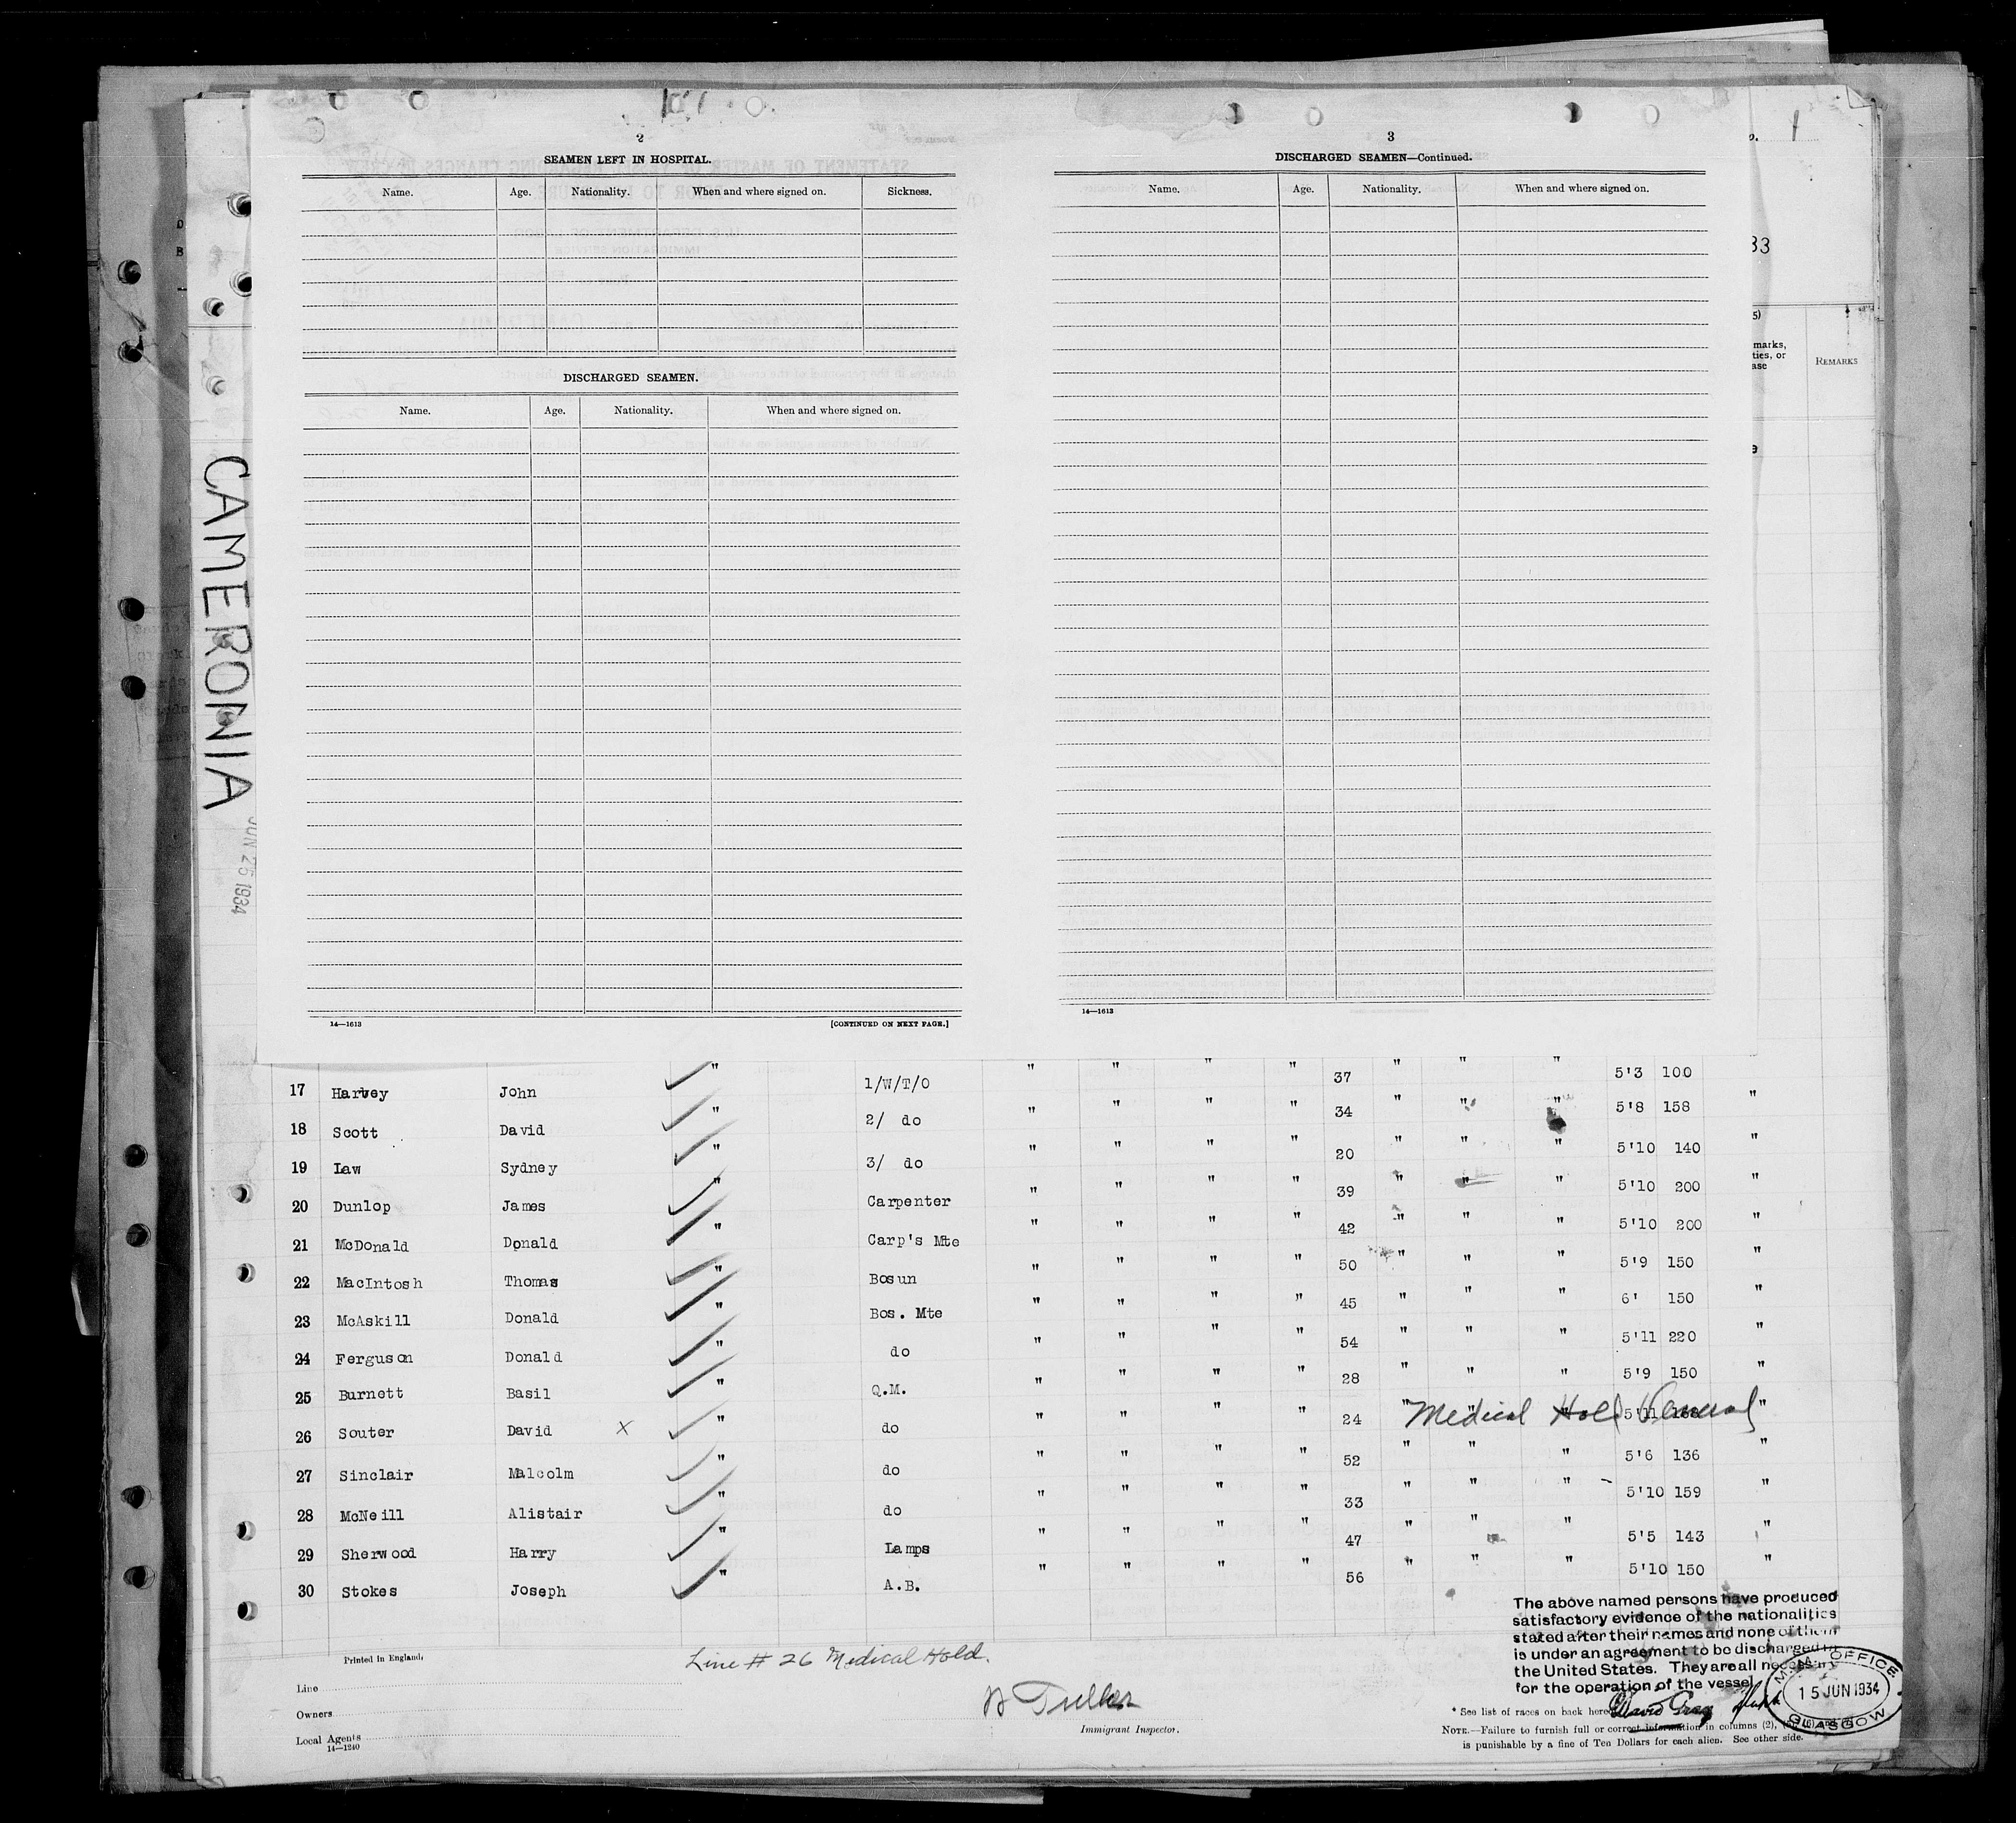 2
SEAMEN LEFT IN HOSPITAL.
Name. Age. Nationality. When and where signed on. Sickness.
DISCHARGED SEAMEN.
Name. Age. Nationality. When and where signed on.
14—1613 [CONTINUED ON NEXT PAGE.]
3
DISCHARGED SEAMEN—Continued.
Name. Age. Nationality. When and where signed on.
14—1613
1
33
REMARKS
CAMERONIA
JUN 25 1934
17 Harvey John " 1/W/T/O " " " " 37 " " " 5'3 100
18 Scott David " 2/ do " " " " 34 " " " 5'8 158 "
19 Law Sydney " 3/ do " " " " 20 " " " 5'10 140 "
20 Dunlop James " Carpenter " " " " 39 " " " 5'10 200 "
21 McDonald Donald " Carp's Mte " " " " 42 " " " 5'10 200 "
22 MacIntosh Thomas " Bosun " " " " 50 " " " 5'9 150 "
23 McAskill Donald " Bos. Mte " " " " 45 " " " 6' 150 "
24 Ferguson Donald " do " " " " 54 " " " 5'11 220 "
25 Burnett Basil " Q.M. " " " " 28 " " " 5'9 150 "
26 Souter David X " do " " " " 24 " " " 5'11 "
Medical Hold
27 Sinclair Malcolm " do " " " " 52 " " " 5'6 136 "
28 McNeill Alistair " do " " " " 33 " " " 5'10 159 "
29 Sherwood Harry " Lamps " " " " 47 " " " 5'5 143 "
30 Stokes Joseph " A.B. " " " " 56 " " " 5'10 150 "
Printed in England.
Line # 26 Medical Hold.
Line
Owners
Local Agents
14—1240
Immigrant Inspector.
The above named persons have produced
satisfactory evidence of the nationalities
stated after their names and none of them
is under an agreement to be discharged in
the United States. They are all necessary
for the operation of the vessel
David Gray
OFFICE
15 JUN 1934
GLASGOW
* See list of races on back
NOTE.—Failure to furnish full or correct information in columns (2),
is punishable by a fine of Ten Dollars for each alien. See other side.